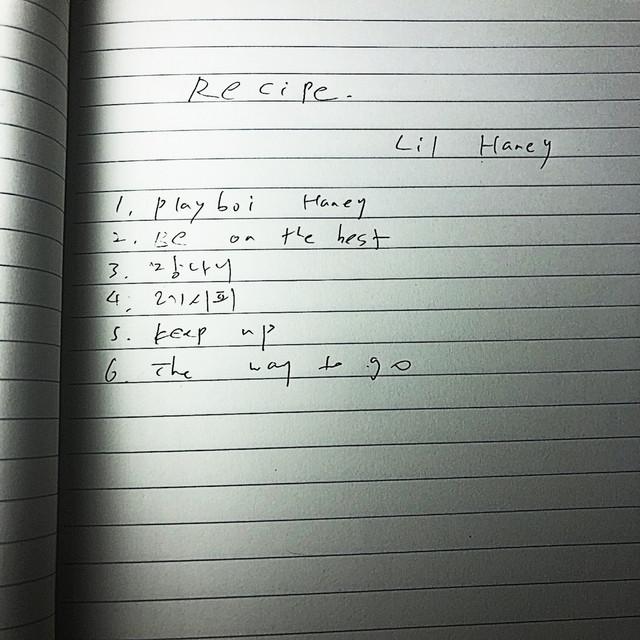 Recipe.
Lil Haney
1. Playboi Haney
2. BE on the best
3.
4. 레시피
5. keep up
6. The way to go